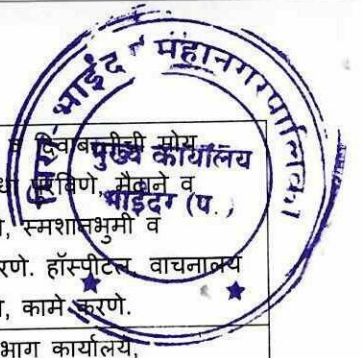 मिरा-भाईंदर महानगरपालिका
मुख्य कार्यालय
भाईंदर (प.)
व दिवाबत्तीची सोय
पुरविणे, मैदाने व
स्मशानभुमी व
रणे. हॉस्पीटल, वाचनालय
कामे करणे.
भाग कार्यालय,